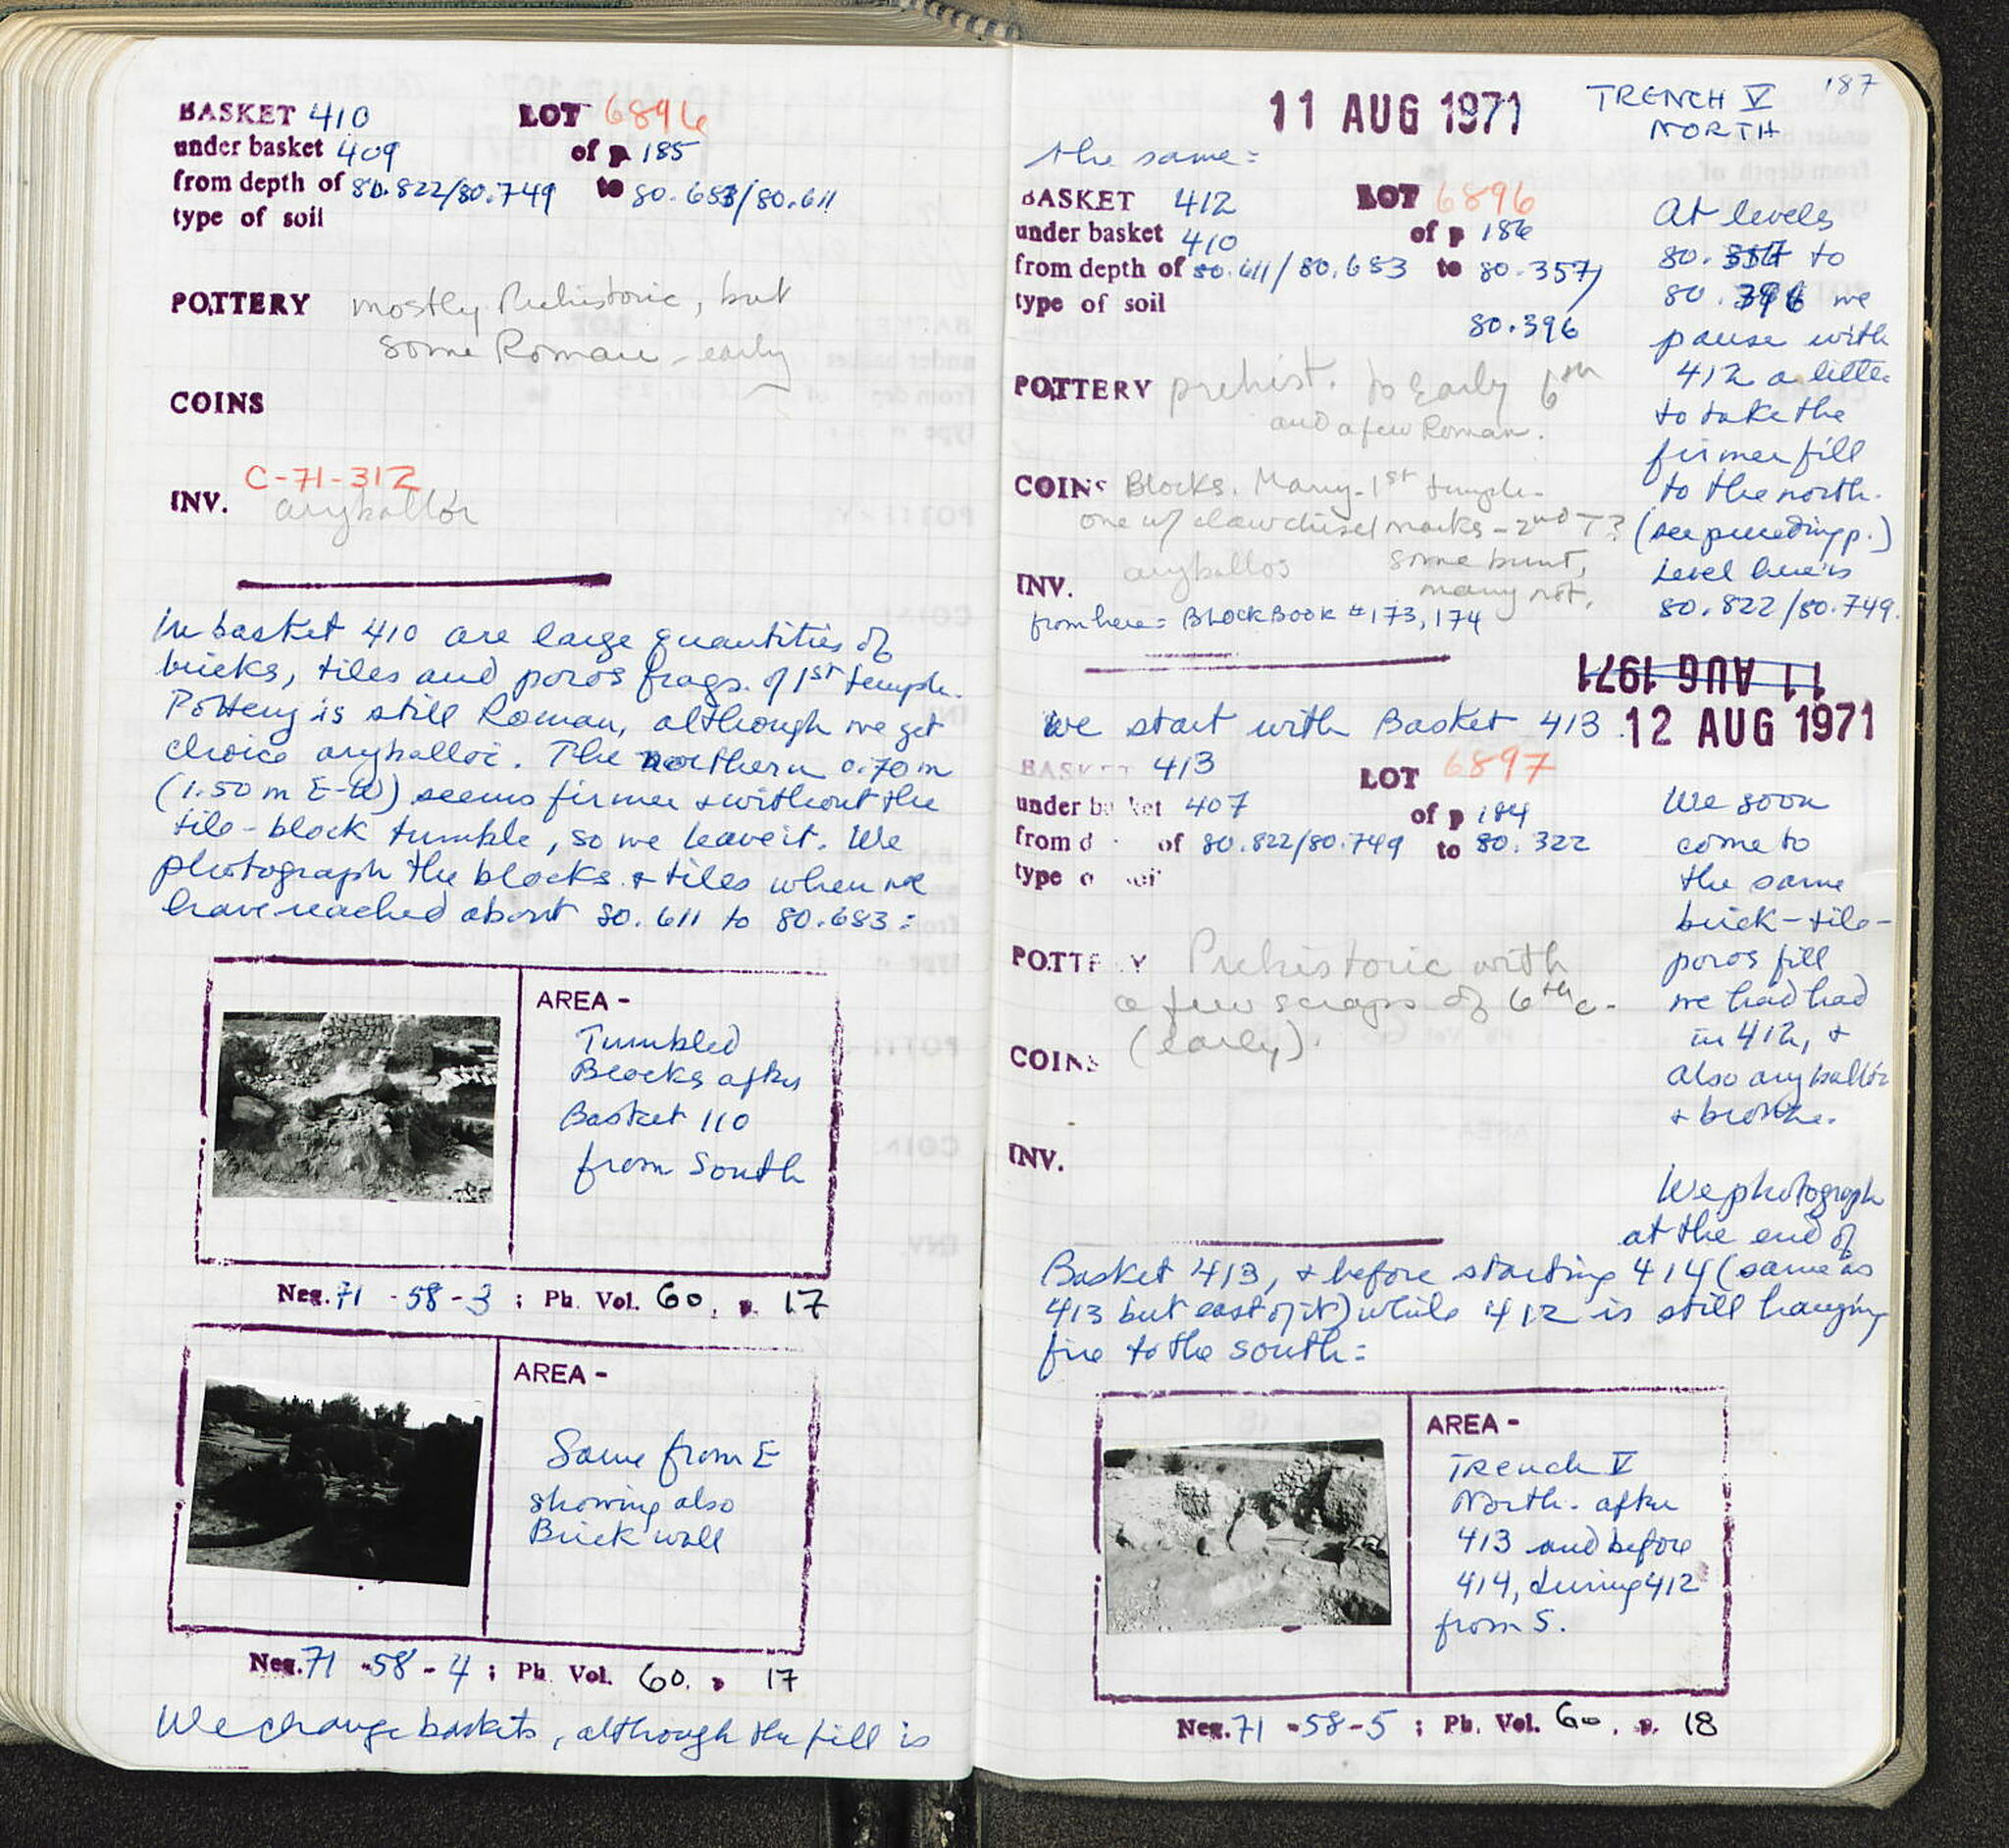 BASKET 410 LOT 6896
under basket 409 of p 185
from depth of 80.822/80.749 to 80.683/80.611
type of soil
POTTERY mostly Prehistoric, but
some Roman - early
COINS
C-71-312
INV. aryballoi
In basket 410 are large quantities of
bricks, tiles and poros frags. of 1st temple.
Pottery is still Roman, although we get
choice aryballoi. The northern 0.70 m
(1.50 m E-W) seems firmer & without the
tile-block tumble, so we leave it. We
photograph the blocks & tiles when we
have reached about 80.611 to 80.683:
AREA -
Tumbled
Blocks after
Basket 110
from South
Neg. 71 - 58 - 3 ; Ph. Vol. 60, p. 17
AREA -
Same from E
showing also
Brick wall
Neg. 71 - 58 - 4 ; Ph. Vol. 60. p 17
We change baskets, although the fill is
187
11 AUG 1971 TRENCH V
NORTH
the same:
BASKET 412 LOT 6896
under basket 410 of p 186
from depth of 80.611/80.683 to 80.357/
type of soil
80.396
POTTERY prehist. to Early 6th
and a few Roman.
COINS Blocks. Many - 1st temple -
one w/ claw chisel marks - 2nd T?
aryballos some burnt,
INV. many not.
from here = Block Book #173, 174
At levels
80. to
80.396 we
pause with
412 a little
to take the
firmer fill
to the north.
(see preceding p.)
Level here is
80.822/80.749.
11 AUG 1971
We start with Basket 413. 12 AUG 1971
BASKET 413 LOT 6897
under basket 407 of p 184
from d of 80.822/80.749 to 80.322
type o soil
POTTERY Prehistoric with
a few scraps of 6th c.
COINS (early).
INV.
We soon
come to
the same
brick-tile-
poros fill
we had had
in 412, &
also aryballoi
& bronze.
We photograph
at the end of
Basket 413, & before starting 414 (same as
413 but east of it) while 412 is still hanging
fire to the south:
AREA -
Trench V
North. after
413 and before
414, during 412
from S.
Neg. 71 - 58 - 5 ; Ph. Vol. 60. p. 18